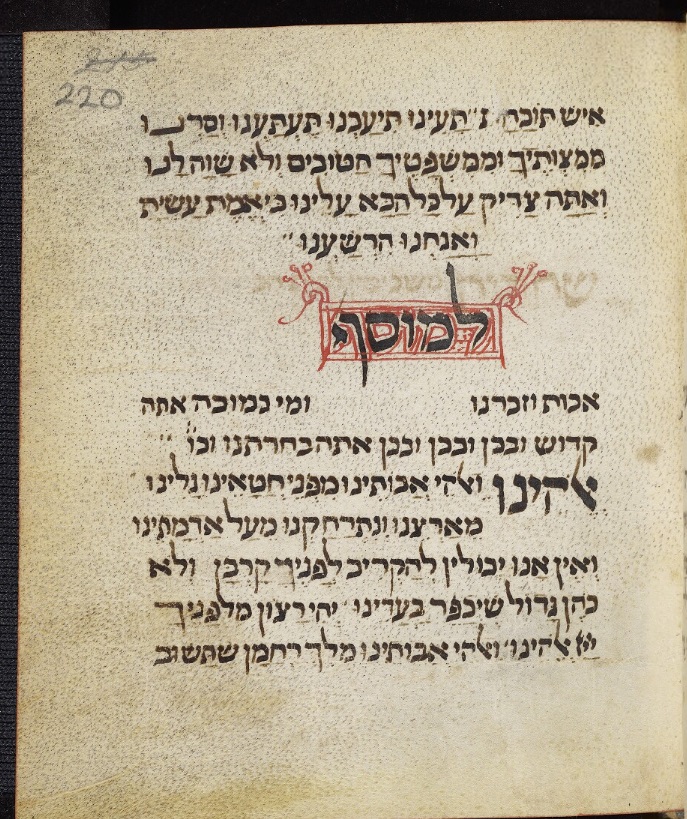 220
איש תעינו תיעבנו תעתענו וסרנו
ממצותיך וממשפטיך הטובים ולא שוה לנו
ואתה צדיק על כל הבא עלינו כי אמת עשית
ואנחנו הרשענו
למוסף
אבות וזכרנו ומי כמוכה אתה
קדוש ובכן ובכן ובכן אתה בחרתנו וכו
אלהינו ואלהי אבותינו מפני חטאינו גלינו
מארצנו ונתרחקנו מעל אדמתינו
ואין אנו יכולין להקריב לפניך קרבן ולא
כהן גדול שיכפר בעדינו יהי רצון מלפניך
אלהינו ואלהי אבותינו מלך רחמן שתשוב